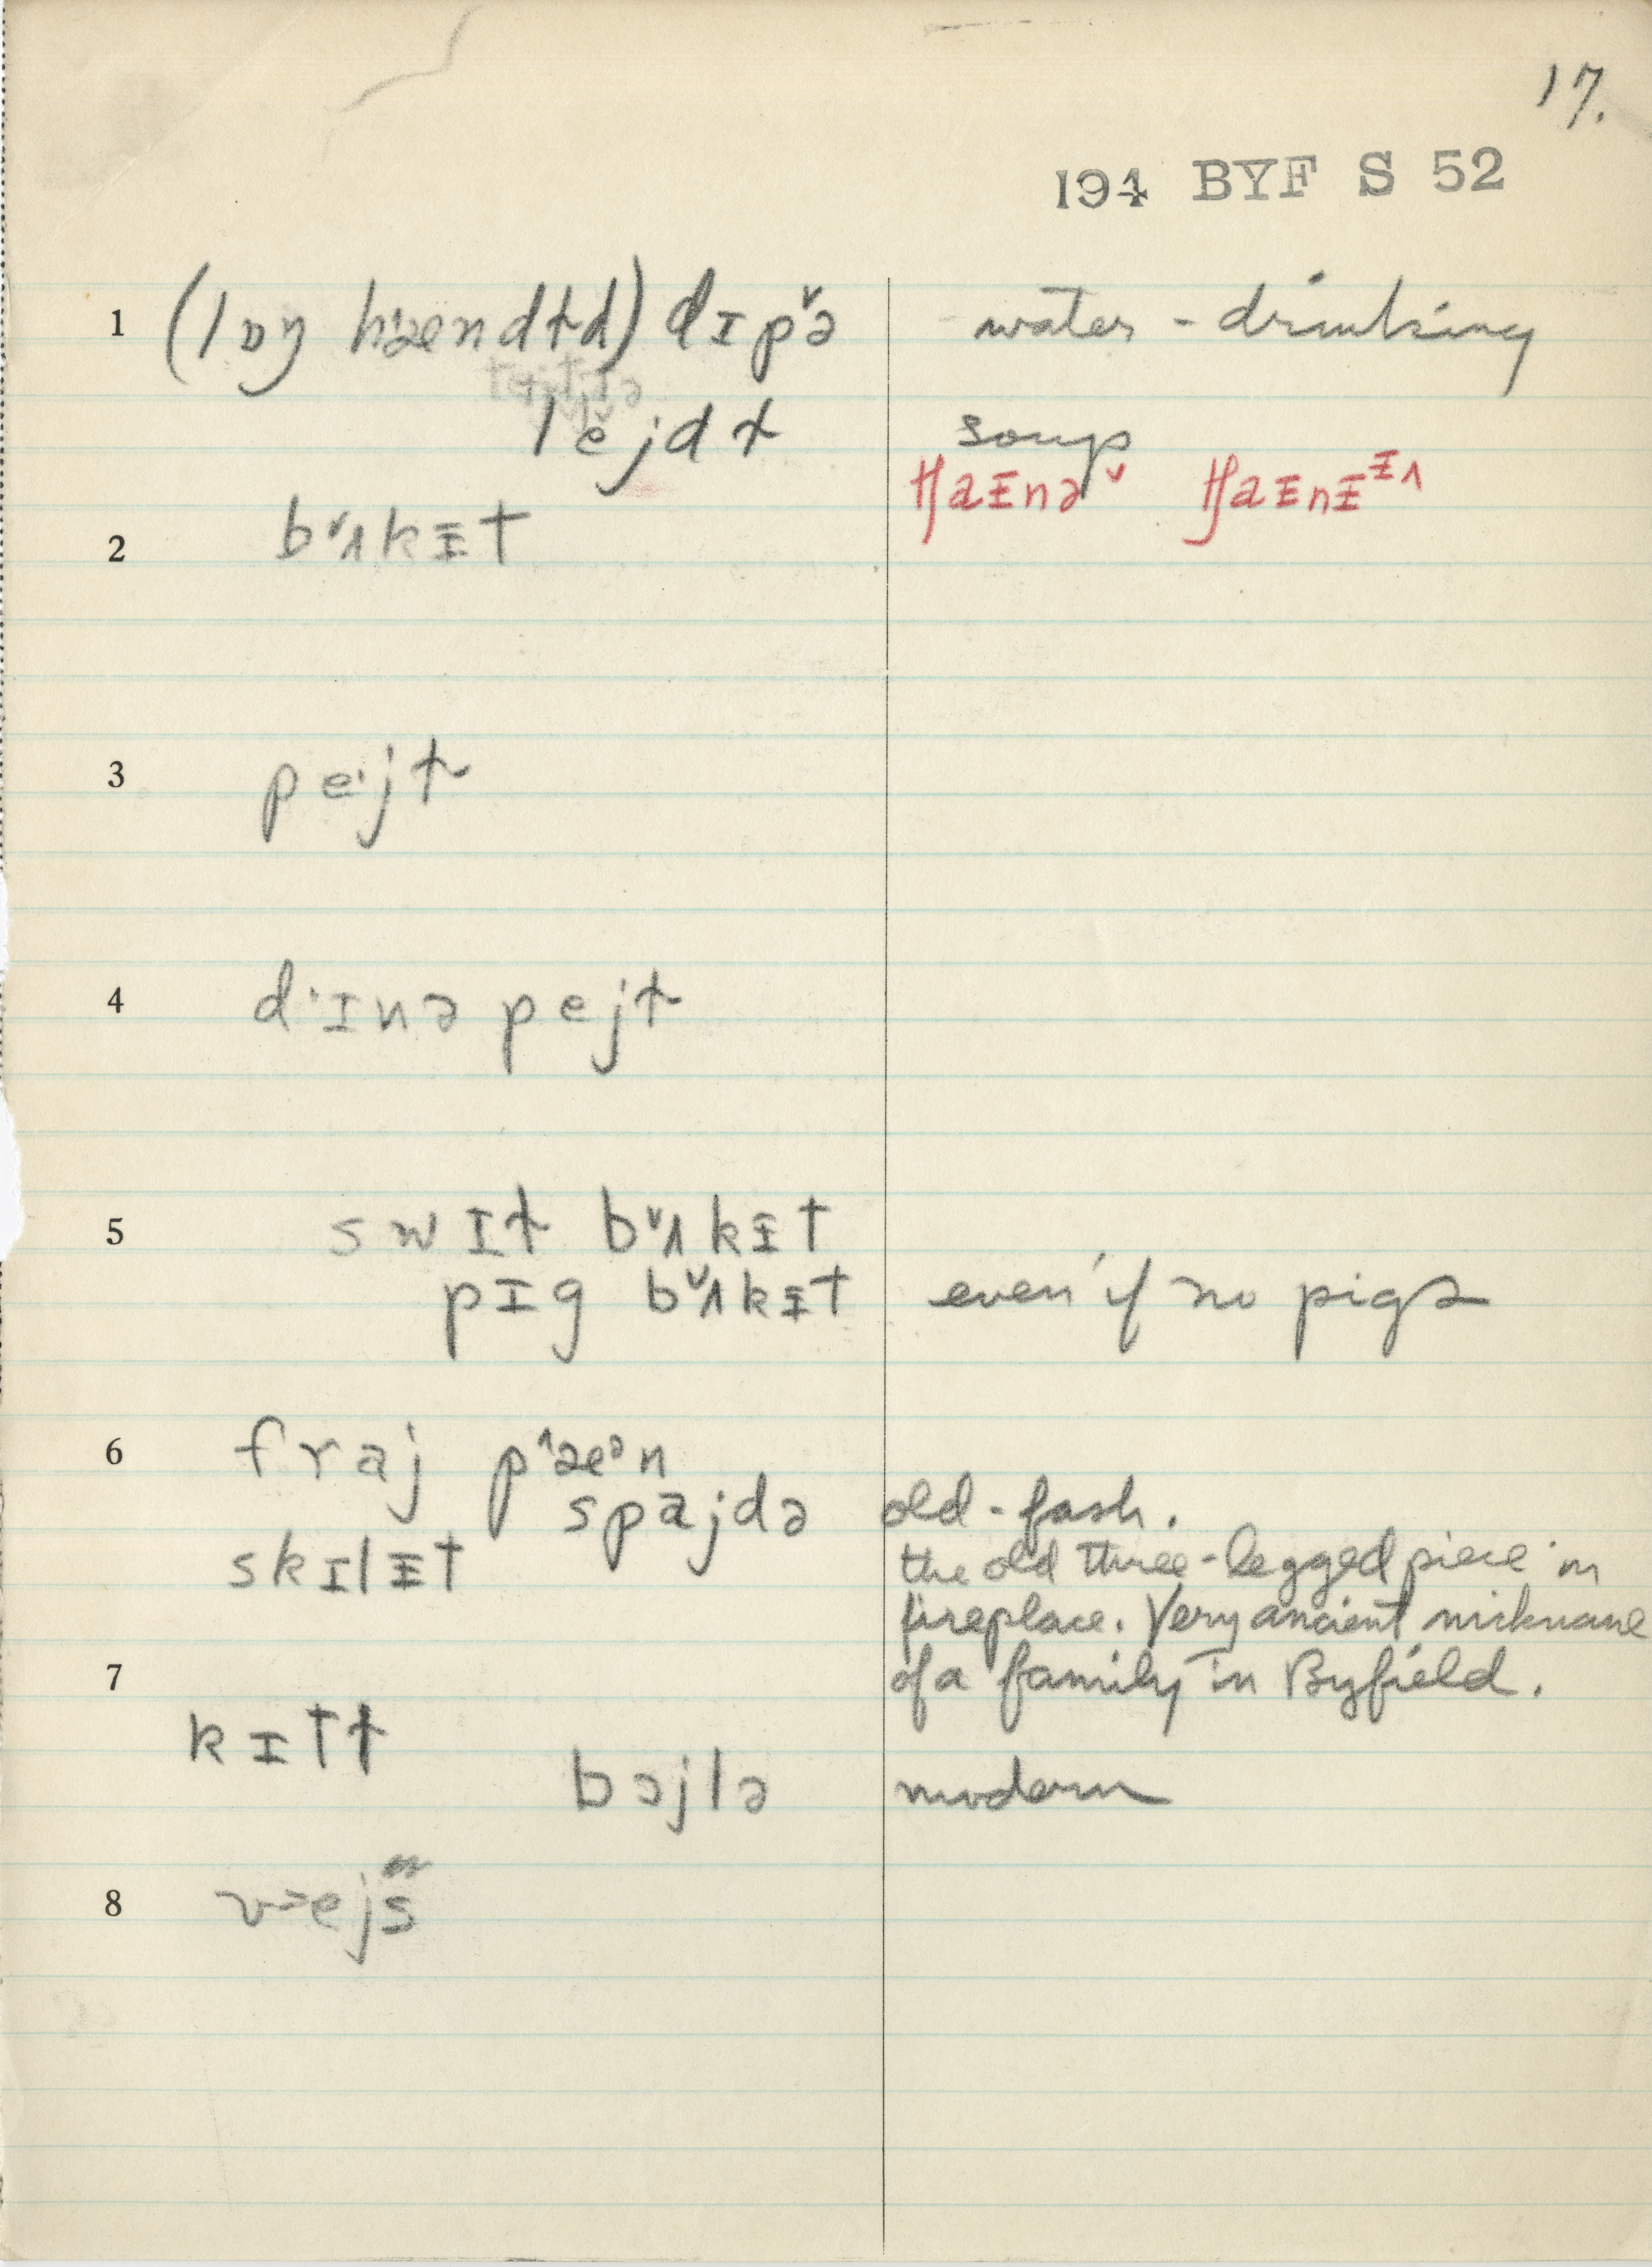 17.
194 BYF S 52
1 (lɒŋ hændɫd) dɪpˇə water - drinking
lĕjdɫ soup
tʃaᵻnəˇ tʃaᵻnᵻᵻ^
2 bˇʌkᵻt
3 peˑjt
4 dˑɪnə pejt
5 swɪt bˇʌkᵻt
pɪg bˇʌkᵻt even if no pigs
6 fraj pˆæᵊn
spajdə old-fash.
skɪlᵻt the old three-legged piece in
fireplace. Very ancient nickname
7 of a family in Byfield.
kɪtɫ
bɔjlə modern
8 v>ejs